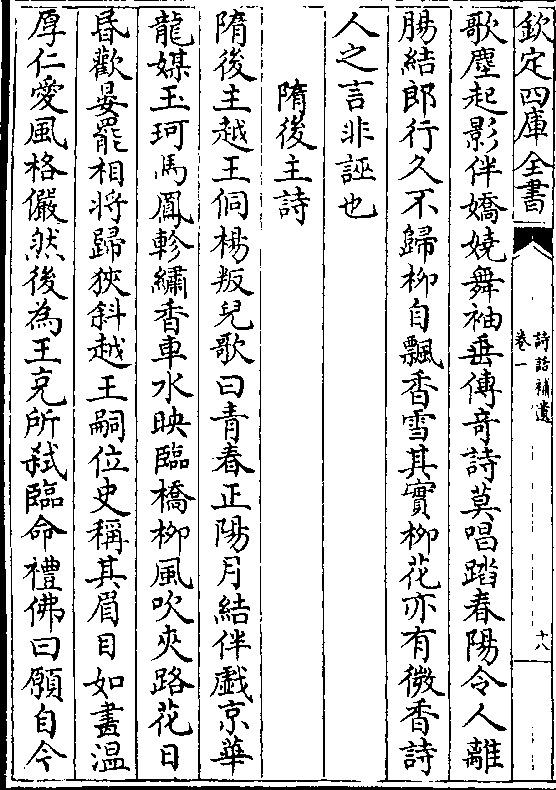 欽定四庫全書
詩話補遺
卷一
十八
歌塵起影伴嬌嬈舞袖垂傳奇詩莫唱踏春陽令人離
腸結郎行久不歸柳自飄香雪其實柳花亦有微香詩
人之言非誣也
隋後主詩
隋後主越王侗楊叛兒歌曰青春正陽月結伴戲京華
龍媒玉珂馬鳳軫繡香車水映臨橋柳風吹夾路花日
昏歡宴罷相將歸狹斜越王嗣位史稱其眉目如畫温
厚仁愛風格儼然後為王充所弑臨命禮佛曰願自今